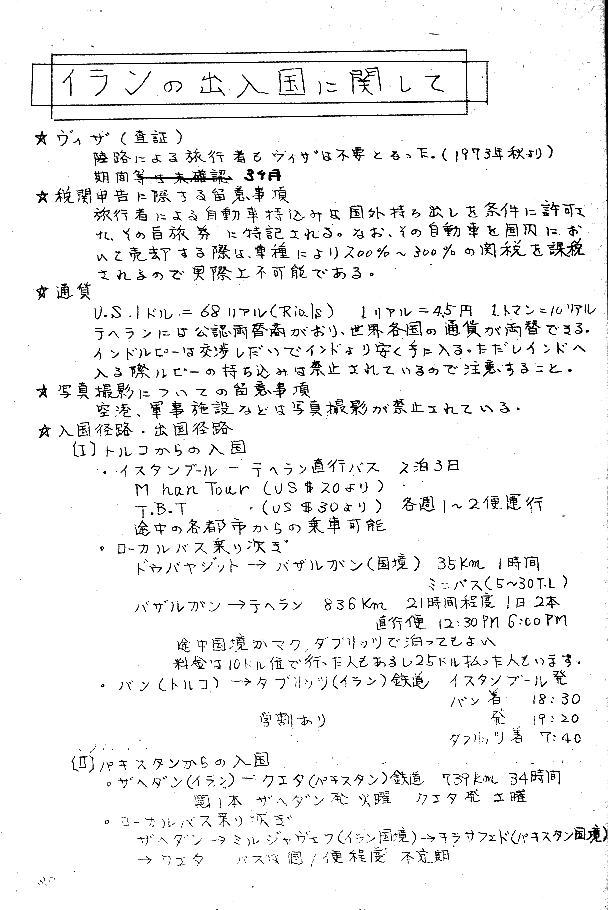 イランの出入国に関して
★ ヴィザ (査証)
陸路による旅行者もヴィザは不要となった。(1973年秋より)
期間等は未確認 3ヶ月
★ 税関申告に際する留意事項
旅行者による自動車持込みは国外持ち出しを条件に許可さ
れ、その旨旅券に特記される。なお、その自動車を国内にお
いて売却する際は、車種により200%～300%の関税を課税
されるので実際上不可能である。
★ 通貨
U.S.1ドル = 68リアル(Rials) 1リアル=4.5円 1トマン=10リアル
テヘランには公認両替商がおり、世界各国の通貨が両替できる。
インドルピーは交渉しだいでインドより安く手に入る。ただしインドへ
入る際ルピーの持ち込みは禁止されているので注意すること。
★ 写真撮影についての留意事項
空港、軍事施設などは写真撮影が禁止されている。
★ 入国径路・出国径路
[I] トルコからの入国
・イスタンブール ー テヘラン直行バス 2泊3日
Mhan Tour (US $20より)
T.B.T (US $30より) 各週1～2便運行
途中の各都市からの乗車可能
・ローカルバス乗り次ぎ
ドゥバヤジット → バザルガン(国境) 35Km 1時間
ミニバス(5~30T.L)
バザルガン → テヘラン 836Km 21時間程度 1日2本
直行便 12:30PM 6:00PM
途中国境かマク、タブリッツで泊ってもよい
料金は10ドル位で行った人もあるし25ドル払った人もいます。
・バン(トルコ) → タブリッツ(イラン)鉄道 イスタンブール発
バン着 18:30
学割あり 発 19:20
タブリッツ着 7:40
[II] パキスタンからの入国
・ザヘダン(イラン) ー クエタ(パキスタン)鉄道 739km 34時間
週1本 ザヘダン発 火曜 クエタ発 土曜
・ローカルバス乗り次ぎ
ザヘダン → ミルジャヴェフ(イラン国境) → キラサフェド(パキスタン国境)
→ クエタ バスは週1便程度 不定期